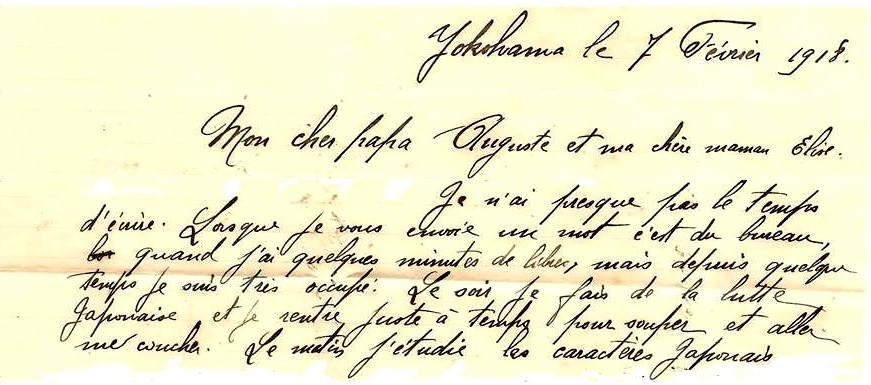 Yokohama le 7 Février 1918.
Mon cher papa Auguste et ma chère maman Élise.
Je n'ai presque pas le temps
d'écrire. Lorsque je vous envoie un mot c'est du bureau,
quand j'ai quelques minutes de libres, mais depuis quelque
temps je suis très occupé. Le soir je fais de la lutte
Japonaise et je rentre juste à temps pour souper et aller
me coucher. Le matin j'étudie les caractères Japonais